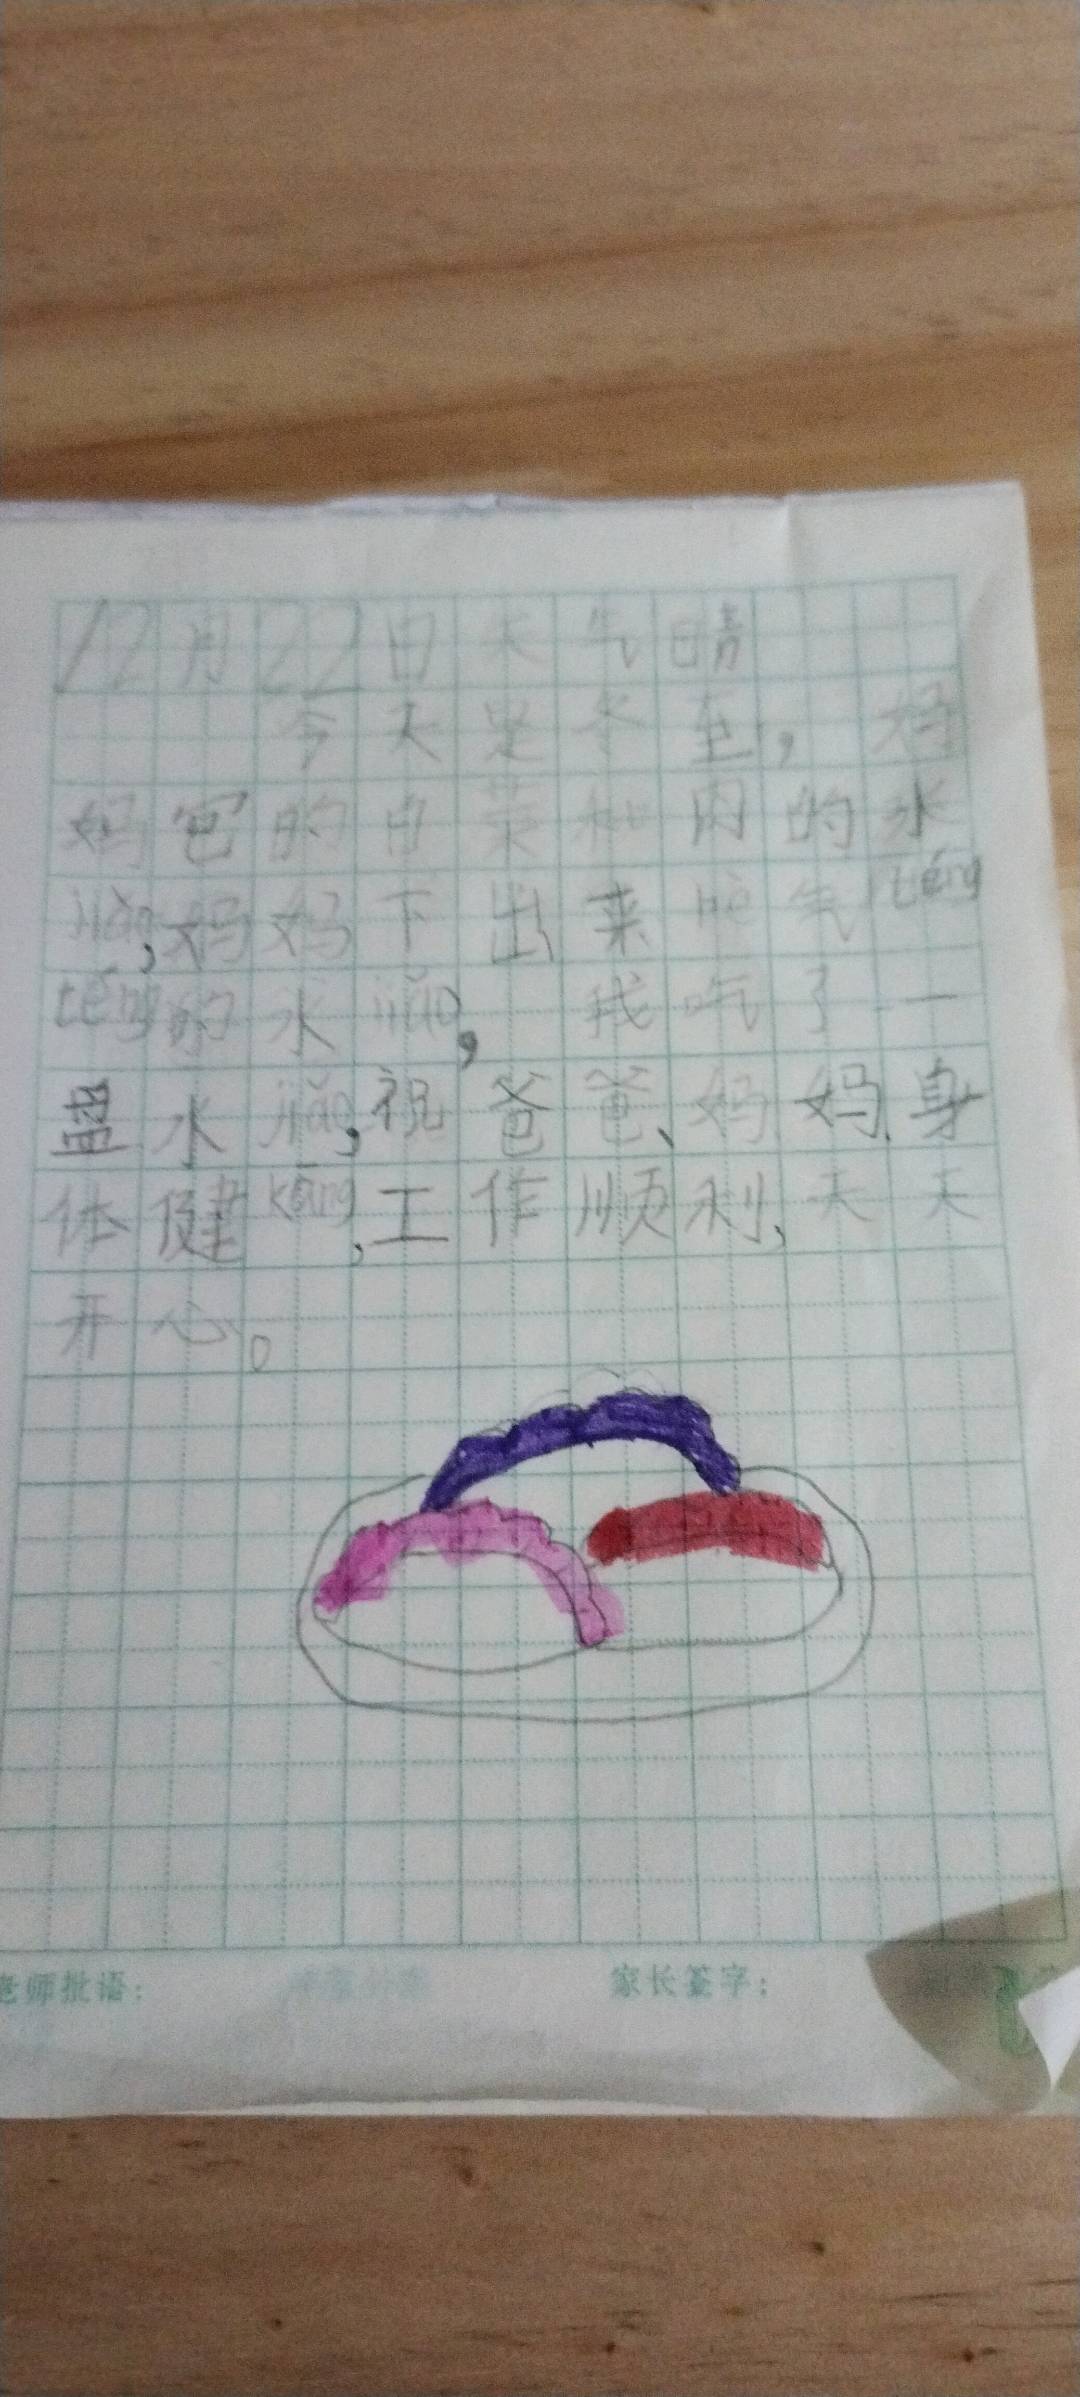 12月22日天气晴
今天是冬至，妈
妈包的白菜和肉的水
jiǎo，妈妈下出来rè气téng
téng的水jiǎo，我吃了一
盘水jiǎo，祝爸爸、妈妈、身
体健kāng，工作顺利，天天
开心。
老师批语：
家长签字：